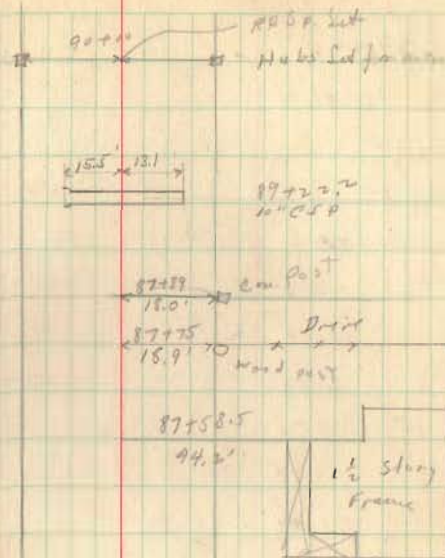 90+00
Set
Hubs Set for
15.5' 13.1
89+22.2
10" C S P
87+89 Con. Post
18.0'
87+75 Drive
18.9' Wood post
87+58.5
94.2'
1 1/2 Story
Frame